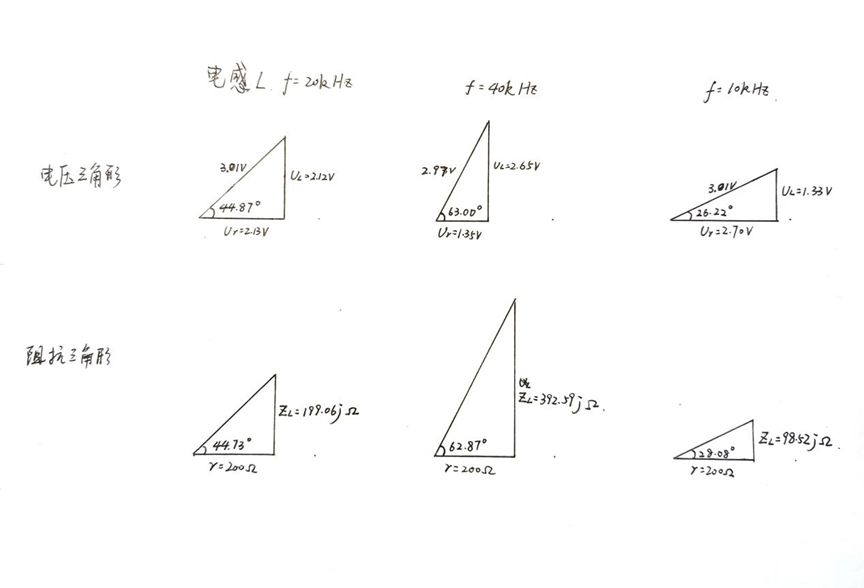 电感L. f=20kHz
f=40kHz
f=10kHz
电压三角形
3.01V
UL=2.12V
44.87°
Ur=2.13V
2.97V
UL=2.65V
63.00°
Ur=1.35V
3.01V
UL=1.33V
26.22°
Ur=2.70V
阻抗三角形
ZL=199.06jΩ
44.73°
r=200Ω
ZL=392.59jΩ.
62.87°
r=200Ω
ZL=98.52jΩ.
28.08°
r=200Ω